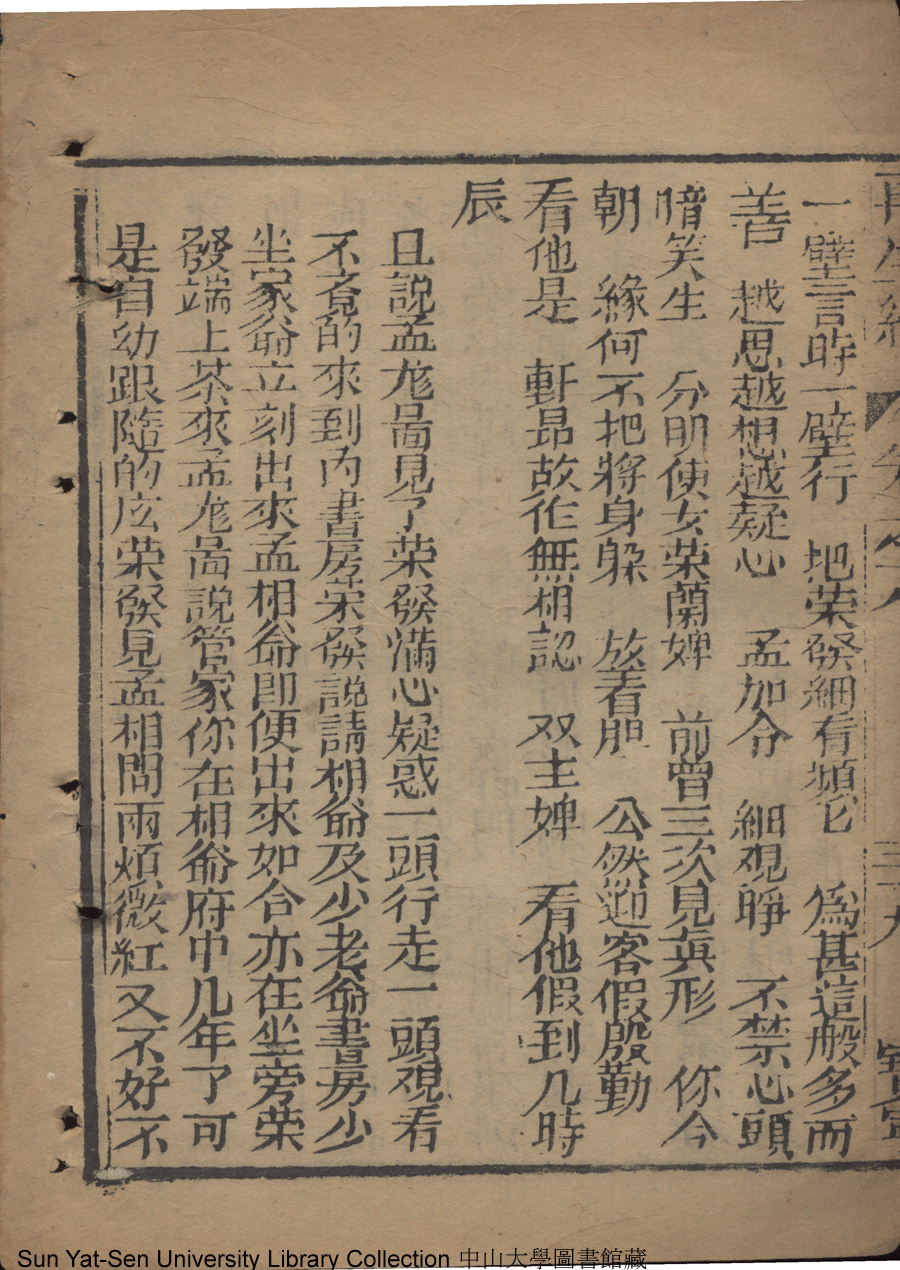 再生縁 卷之八 三十九
一壁言時一壁行 把荣發細看頻乜 為甚這般多面
善 越思越想越疑心 孟加令 細覌睁 不禁心頭
暗笑生 分明使女荣蘭婢 前曾三次見真形 你今
朝 緣何不把將身躲 放着胆 公然迎客假殷勤
看他是 軒昂故作無相認 双主婢 看他假到几時
辰
且說孟尨啚見了荣發滿心疑惑一頭行走一頭覌看
不斉的來到内書房荣發說請相爺及少老爺書房少
坐家爺立刻出來孟相爺即便出來如合亦在坐旁荣
發端上茶來孟尨啚説管家你在相爺府中几年了可
是自幼跟隨的庅荣發見孟相問両頬微紅又不好不
Sun Yat-Sen University Library Collection 中山大學圖書館藏